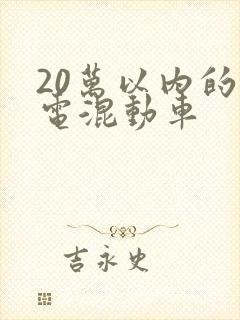 20萬以內的
電混動車
吉永史